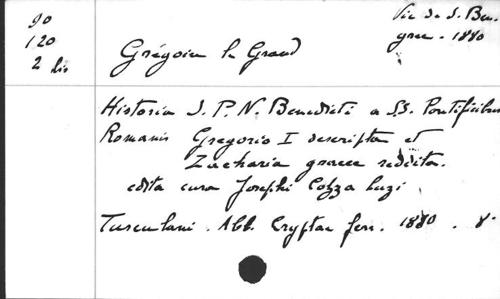 90
120
2 bis
Vie de S. Ben.
grec - 1880
Grégoire le Grand
Historia S. P. N. Benedicti a SS. Pontificibus
Romanis Gregorio I descripta et
Zacharia graece reddita.
edita cura Josephi Cozza Luzi
Tusculani. Abb. Cryptae ferr. 1880. 8°